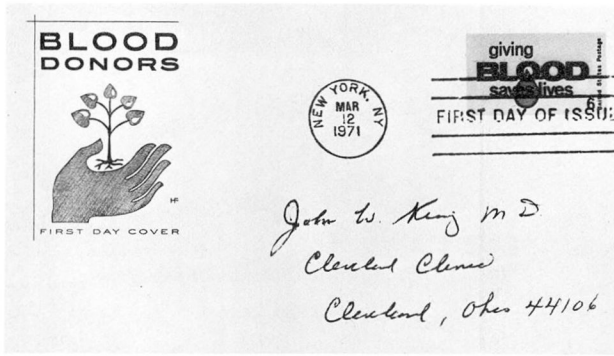 BLOOD
DONORS
HF
FIRST DAY COVER
NEW YORK, NY
MAR
12
1971
giving
BLOOD
saves lives
United States Postage
6c
FIRST DAY OF ISSUE
John W. King M D.
Cleveland Clinic
Cleveland, Ohio 44106